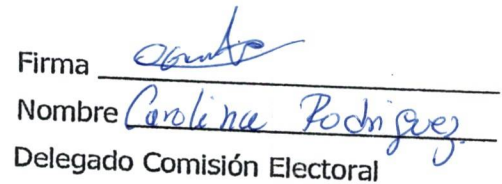 Firma
Nombre Carolina Rodriguez
Delegado Comisión Electoral